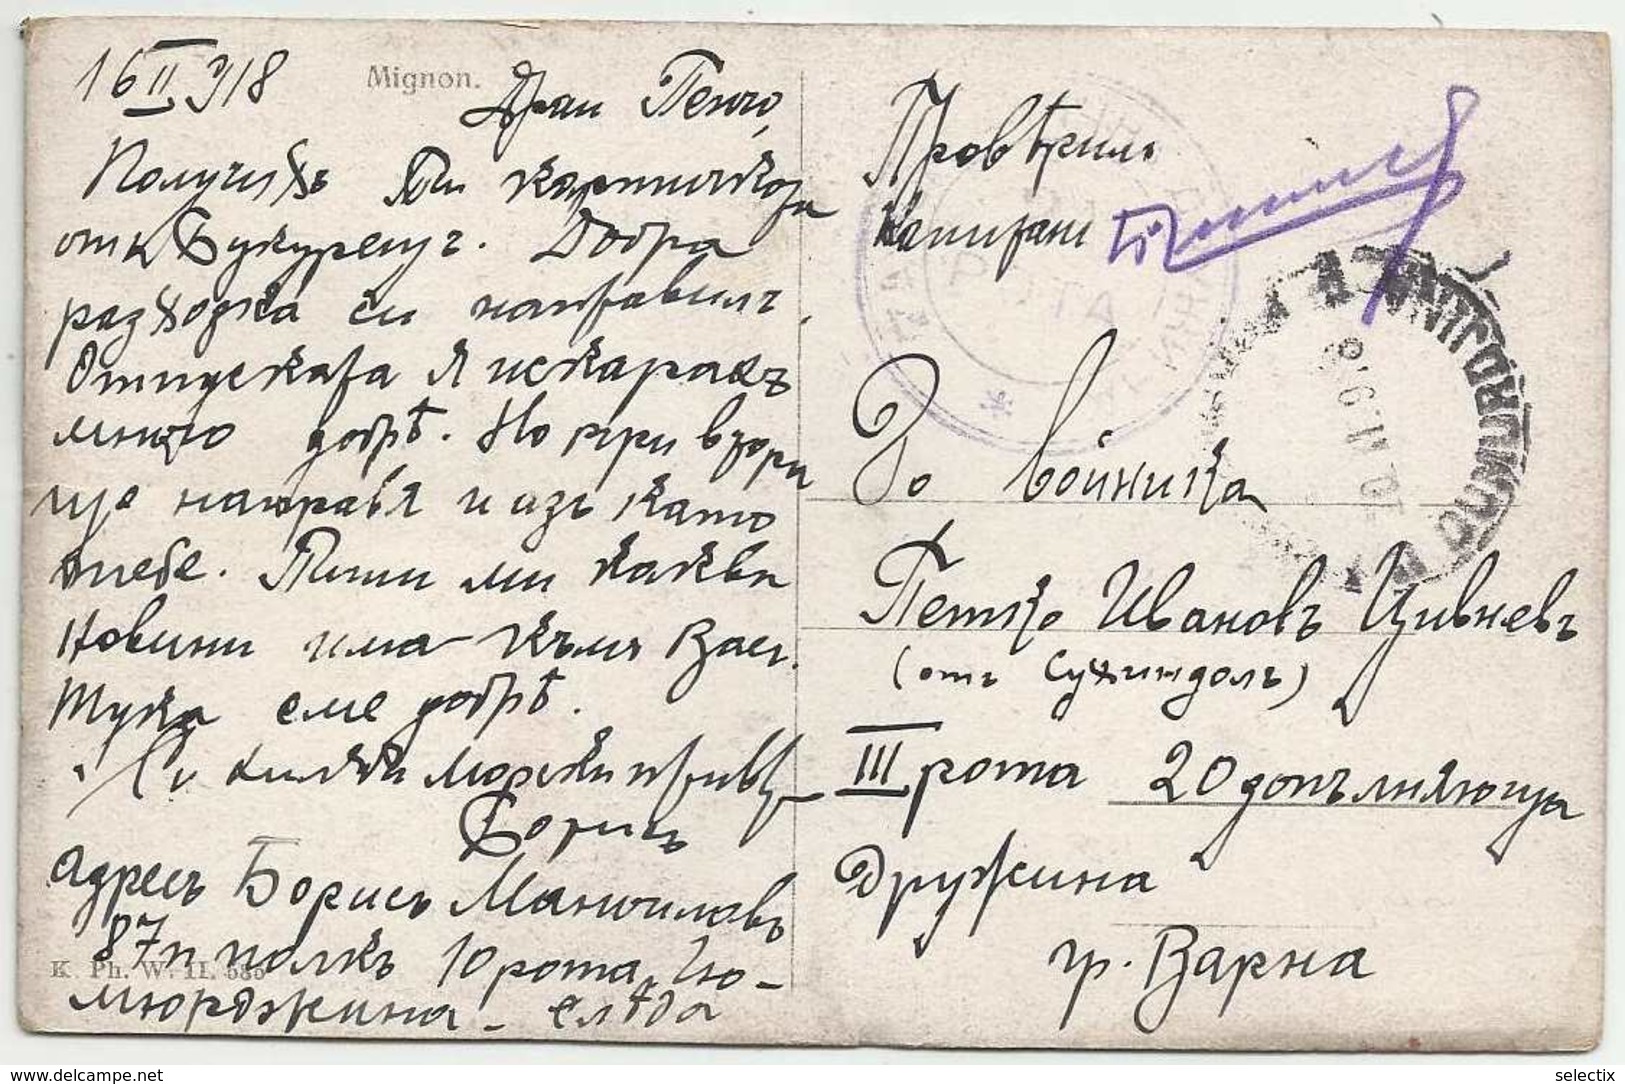 16 II 918
Mignon.
Драги Пенчо,
Получихъ Ти картичката
отъ Букурещъ. Добра
разходка си направилъ.
Отпуската я искарахъ
много добрѣ. Но при втори
ще направя и азъ като
тебе. Пиши ми какви
новини има къмъ Вас.
Тука сме добрѣ.
морски
Борисъ
Адресъ Борисъ Манчиловъ
87 п полкъ 10 рота, Гю-
мюрджина - слѣда
K. Ph. W. II. 585
Провѣрилъ
Капитанъ
За войника
Петко Ивановъ Цивневъ
(отъ Сухиндолъ)
III рота 20 допълняюща
Дружина
гр. Варна
selectix